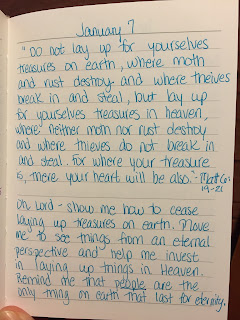 January 7
"Do not lay up for yourselves
treasures on earth, where moth
and rust destroy and where theives
break in and steal, but lay up
for yourselves treasures in heaven,
where neither moth nor rust destroy
and where thieves do not break in
and steal. For where your treasure
is, there your heart will be also." - Matt 6:
19-21
Oh Lord - show me how to cease
laying up treasures on earth. Move
me to see things from an eternal
perspective and help me invest
in laying up things in Heaven.
Remind me that people are the
only thing on earth that last for eternity.